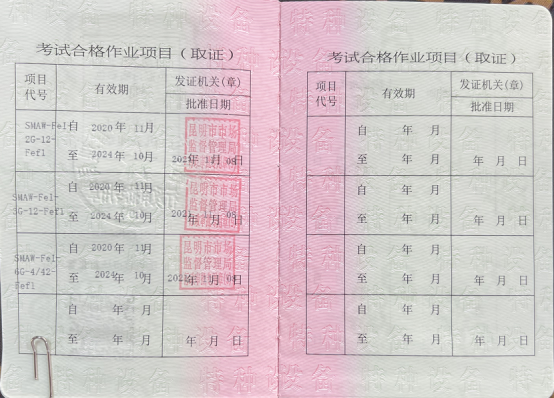 考试合格作业项目（取证）
项目
代号
有效期
发证机关(章)
批准日期
SMAW-FeI-
2G-12-
Fef1
自 2020年 11月
至 2024年 10月
昆明市市场
监督管理局
年11月 日
SMAW-FeI-
3G-12-Fef1
自 2020年 11月
至 2024年 10月
昆明市市场
监督管理局
年 月 日
SMAW-FeI-
6G-4/42-
Fef1
自 2020年 11月
至 2024年 10月
昆明市市场
监督管理局
年 月 日
自 年 月
至 年 月
年 月 日
考试合格作业项目（取证）
项目
代号
有效期
发证机关(章)
批准日期
自 年 月
至 年 月
年 月 日
自 年 月
至 年 月
年 月 日
自 年 月
至 年 月
年 月 日
自 年 月
至 年 月
年 月 日